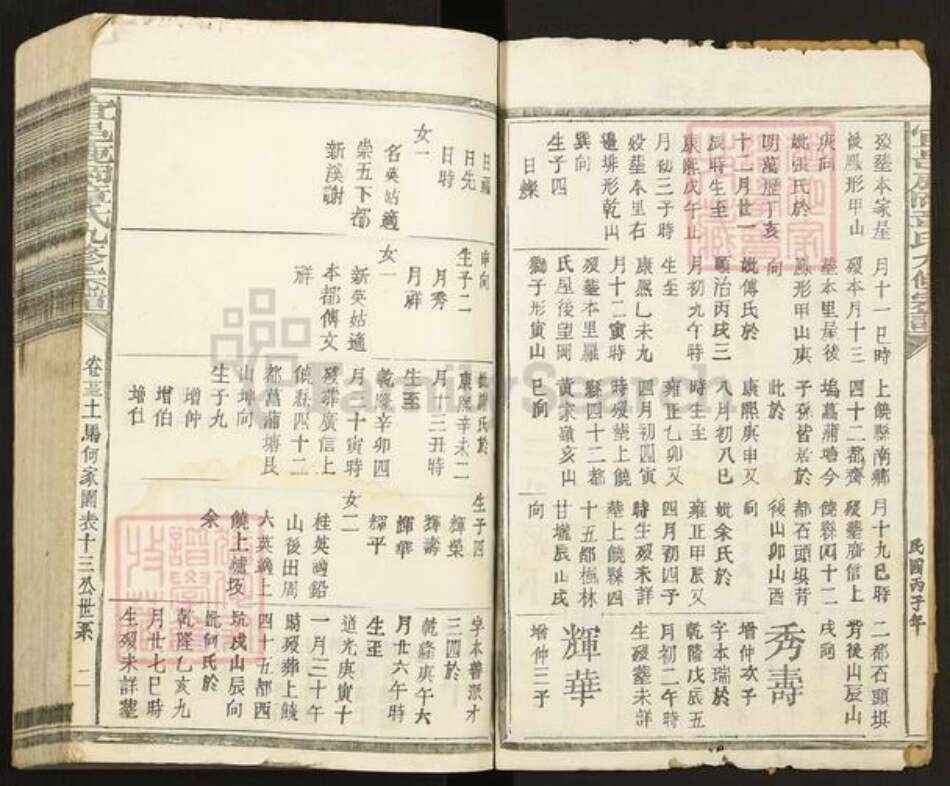 歿塟本家屋
後鳳形甲山
庚向
妣張氏於
明萬歷丁亥
十二月廿一
辰時生至
康熙戊午正
月初三子時
歿塟本里右
邊排形乾山
巽向
生子四
日燦
月十一巳時
歿本月十三
塟本里屋後
鳳形甲山庚
向
妣傅氏於
順治丙戌三
月初九午時
生至
康熙乙未九
月十二寅時
歿塟本里羅
氏屋後望岡
獅子形寅山
上饒縣南鄉
四十二都齊
塢菖蒲塘今
子孫皆居於
此於
康熙庚申又
八月初八巳
時生至
雍正乙卯又
四月初四寅
時歿塟上饒
縣四十二都
黃家嶺亥山
巳向
月十九巳時
歿塟廣信上
饒縣四十二
都石頭埧背
後山卯山酉
向
妣余氏於
雍正甲辰又
四月初四子
時生歿未詳
塟上饒縣四
十五都橅林
甘壠辰山戌
向
二都石頭埧
背後山辰山
戌向
秀壽
增仲次子
字本瑞於
乾隆戊辰五
月初二午時
生歿塟未詳
輝華
增仲三子
民國丙子年
日福
日先
日時
女一
名英姑適
崇五下都
新溪謝
申向
生子二
月秀
月祥
女一
新英姑適
本都傅文
祥
妣謝氏於
康熙辛未二
月十三丑時
生至
乾隆辛卯四
月二十寅時
歿葬廣信上
饒縣四十二
都菖蒲塘艮
山坤向
生子九
增仲
增伯
增仕
生子四
輝榮
輝壽
輝華
輝平
女二
桂英適鉛
山後田周
六英適上
饒上櫨坂
余
字本善派才
三四於
乾隆庚午六
月廿六午時
生至
道光庚寅十
一月三十午
時歿葬上饒
四十五都西
坑戌山辰向
妣何氏於
乾隆乙亥九
月廿七巳時
生歿未詳塟
卷之三土馬何家園表十三公世系 二